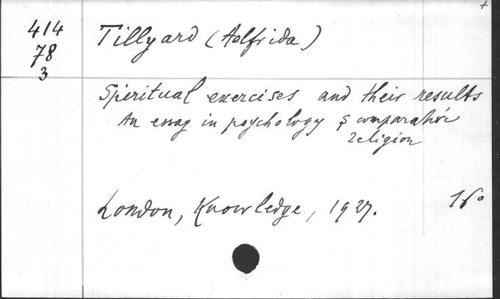 414
78
3
Tillyard (Aelfrida)
Spiritual exercises and their results
An essay in psychology & comparative
religion
London, Knowledge, 1927.
16°